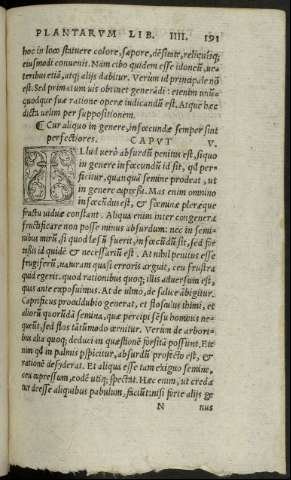 PLANTARVM LIB. IIII. 191
hoc in loco statuere colore, sapore, dēsitate, reliquisq;
eiusmodi conuenit. Nam cibo quidem esse idoneū, ue-
teribus etiā, atq; alijs dabitur. Verum id principale nō
est. Sed primatum uis obtinet generādi: etenim unū-
quodque suæ ratione operæ iudicandū est. Atque hæc
dicta uelim per suppositionem.
¶ Cur aliquo in genere, infœcundæ semper sint
perfectiores. CAPVT V.
ILlud uerò absurdū penitus est, si quo
in genere infœcundū id sit, qd per-
ficitur, quanquā semine prodeat, ut
in genere cupressi. Mas enim omnino
infœcūdus est, & fœminæ pleræque
fructu uiduæ constant. Aliqua enim inter congenera
fructificare non posse minus absurdum: nec in semi-
nibus mirū, si quod læsū fuerit, infœcūdū sit, sed for-
tassis id quidē & necessariū est. At nihil penitus esse
frugiferū, naturam quasi erroris arguit, ceu frustra
quid egerit. quod rationibus quoq; illis aduersum est,
quas ante exposuimus. At de ulmo, de salice ābigitur.
Caprificus proculdubio generat, et flosculus thimi, et
aliorū quorūdā semina, quæ percipi sēsu hominis ne-
queūt, sed flos tātūmodo cernitur. Verum de arbori-
bus alia quoq; deduci in quæstionē forsitā possunt. Ete
nim qd in palmis pspicitur, absurdū profecto est, &
rationē desyderat. Et aliqua esse tam exigno semine,
ceu cupressum, eodē utiq; spectat. Hæc enim, ut credā
aliquibus pabulum, faciūt: nisi forte alijs ge
N nus